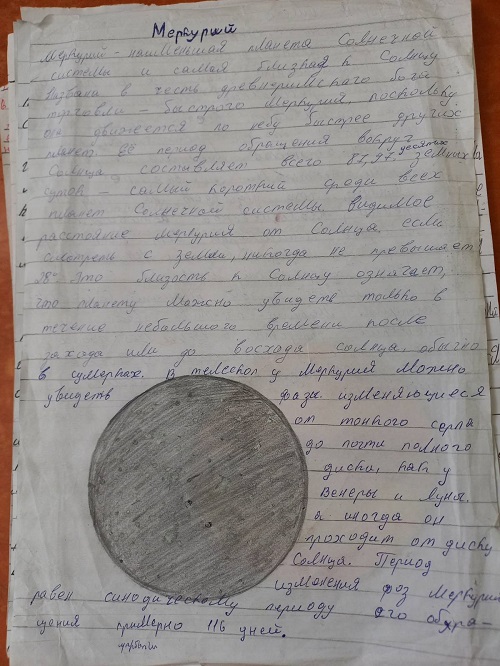 Меркурий
Меркурий - наименьшая планета Солнечной
системы и самая близкая к Солнцу
Названа в честь древнеримского бога
торговли быстрого Меркурий, поскольку
он движется по небу быстрее других
планет. Её период обращения вокруг
Солнца составляет всего 87,97 десятых земных
суток - самый короткий среди всех
планет Солнечной системы. Видимое
расстояние Меркурия от Солнца, если
смотреть с земли, никогда не превышает
28° Это близость к Солнцу означает,
что планету можно увидеть только в
течение небольшого времени после
захода или до восхода солнца, обычно
в сумерках. В телескоп у Меркурий можно
увидеть фазы. изменяющиеся
от тонкого серпа
до почти полного
диска, как у
Венеры и луны.
а иногда он
проходит от диску
Солнца. Период
изменения фаз Меркурия
равен синодическому периоду его обра-
щения примерно 116 дней.